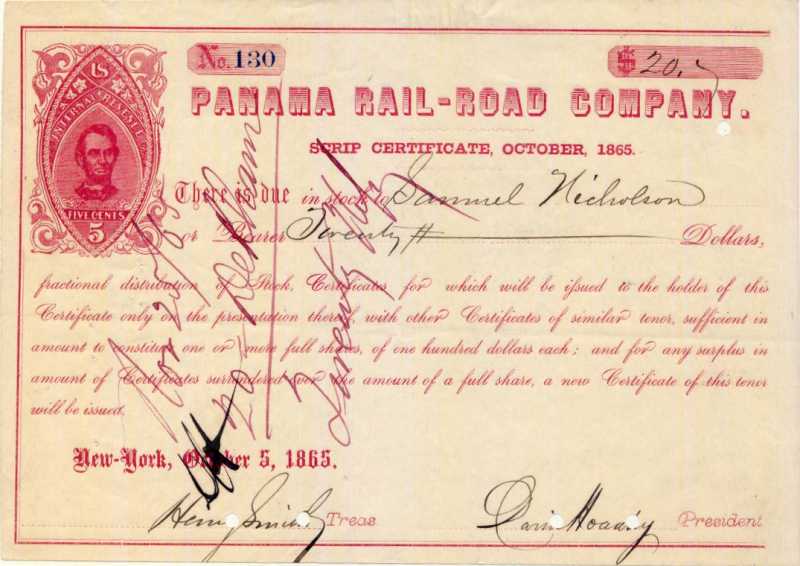 No. 130
$ 20.
US
INTERNAL REVENUE
FIVE CENTS
5
PANAMA RAIL-ROAD COMPANY.
SCRIP CERTIFICATE, OCTOBER, 1865.
There is due in stock to Samuel Nicholson
or Bearer Twenty Dollars,
fractional distribution of Stock, Certificates for which will be issued to the holder of this
Certificate only on the presentation thereof, with other Certificates of similar tenor, sufficient in
amount to constitute one or more full shares, of one hundred dollars each; and for any surplus in
amount of Certificates surrendered over the amount of a full share, a new Certificate of this tenor
will be issued.
New-York, October 5, 1865.
Henry Smith Treas.
David Hoadley President